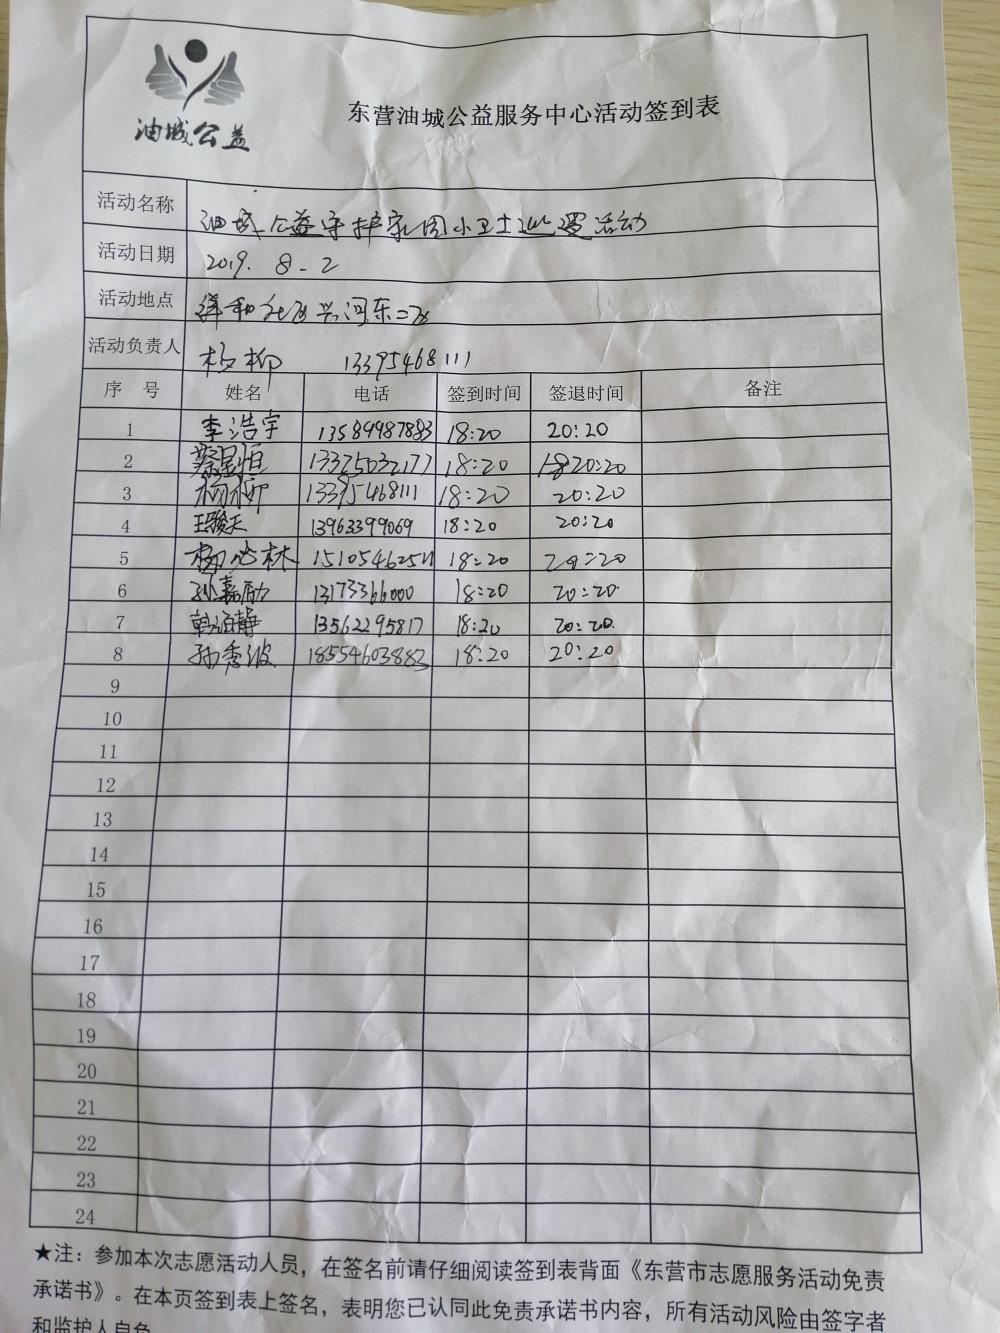 油城公益
东营油城公益服务中心活动签到表
活动名称 油城公益守护家园小卫士巡逻活动
活动日期 2019. 8-2
活动地点 祥和社区兴河东二区
活动负责人 杨柳 13395468111
序号 姓名 电话 签到时间 签退时间 备注
1 李浩宇 13589987883 18:20 20:20
2 蔡昱恒 13325032177 18:20 20:20
3 杨柳 13395468111 18:20 20:20
4 王骏天 13963399069 18:20 20:20
5 林 18:20 20:20
6 孙嘉励 13173366000 18:20 20:20
7 韩语静 13562295817 18:20 20:20
8 孙秀波 18554603883 18:20 20:20
9
10
11
12
13
14
15
16
17
18
19
20
21
22
23
24
★注：参加本次志愿活动人员，在签名前请仔细阅读签到表背面《东营市志愿服务活动免责
承诺书》。在本页签到表上签名，表明您已认同此免责承诺书内容，所有活动风险由签字者
和监护人自负